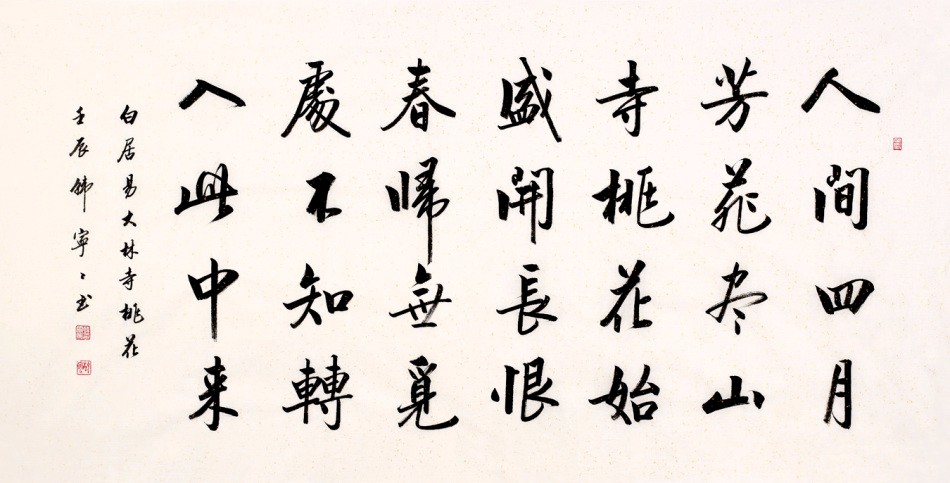 人間四月
芳菲尽山
寺桃花始
盛開長恨
春帰無覓
處不知轉
入此中来
白居易大林寺桃花
壬辰寧〻书